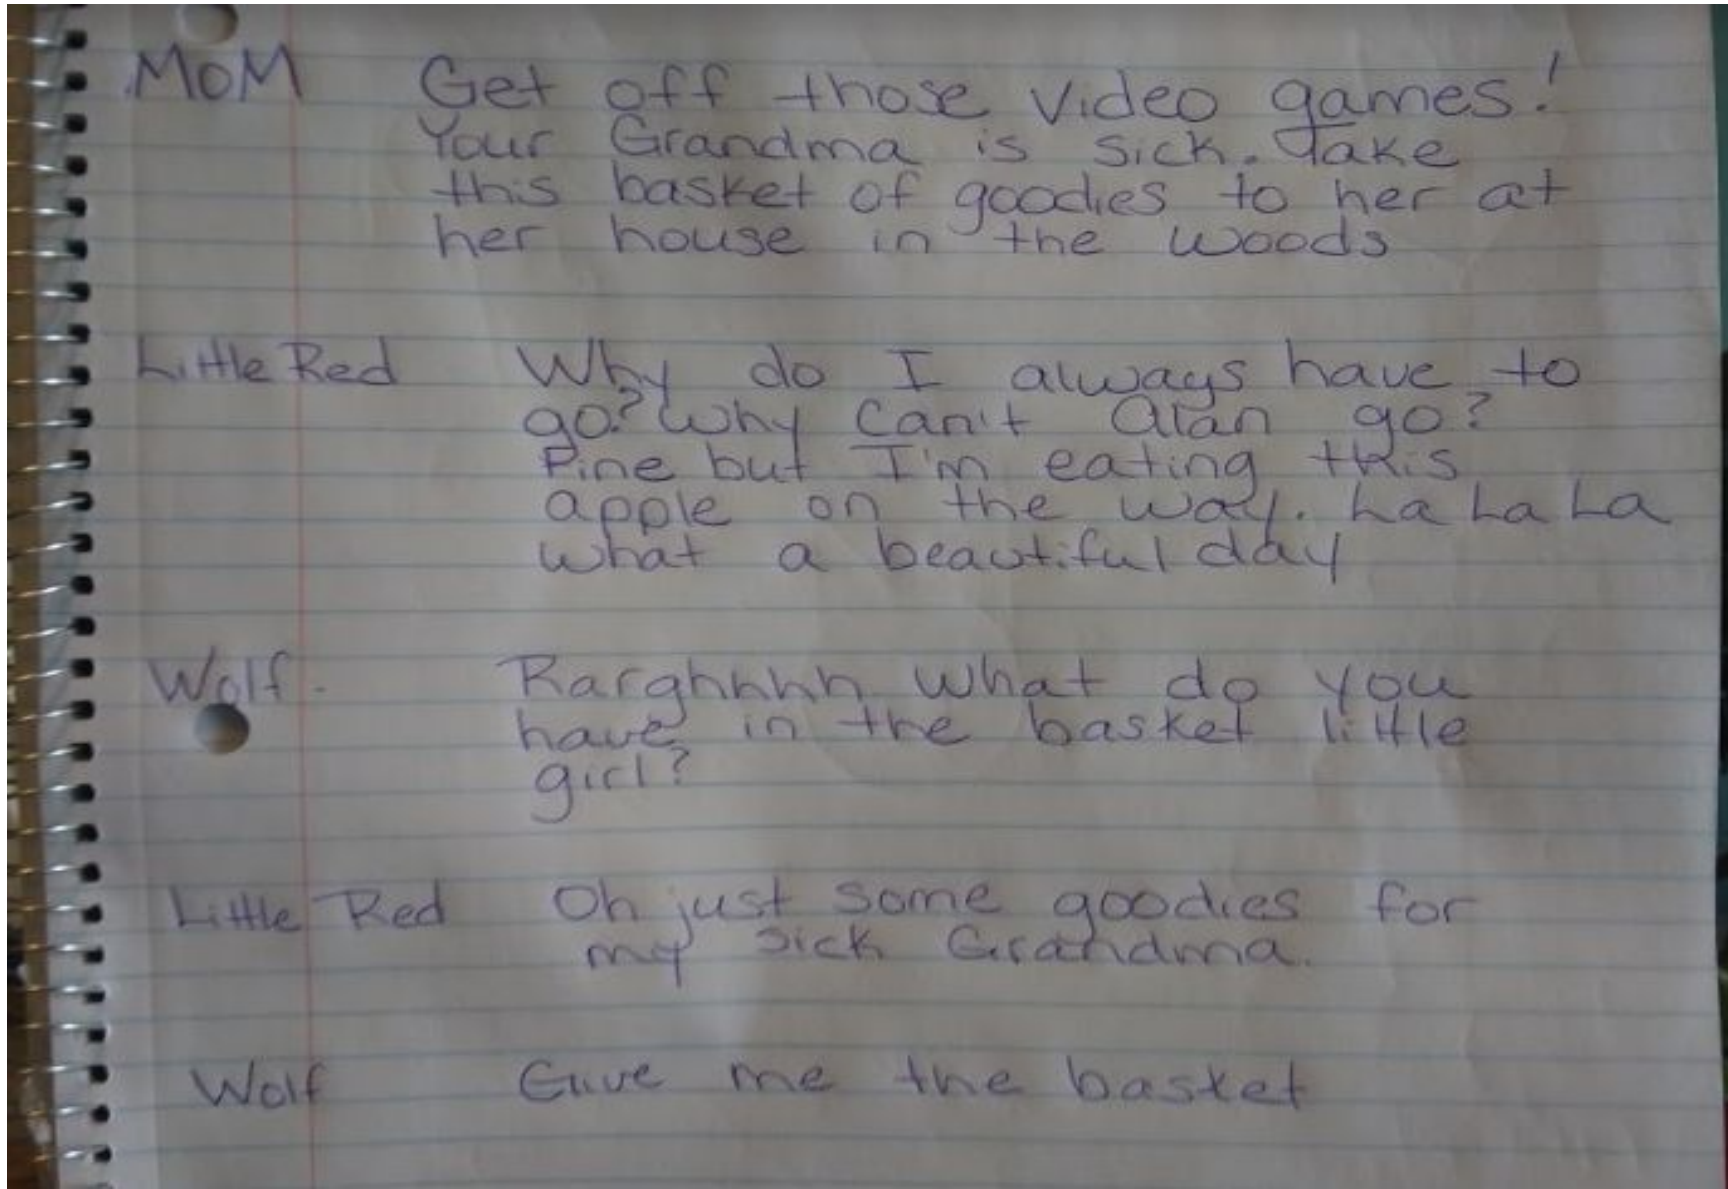 MOM Get off those video games!
Your Grandma is sick. Take
this basket of goodies to her at
her house in the woods
Little Red Why do I always have to
go? Why can't Alan go?
Fine but I'm eating this
apple on the way. La La La
what a beautiful day
Wolf - Rarghhhh what do you
have in the basket little
girl?
Little Red Oh just some goodies for
my sick Grandma.
Wolf Give me the basket